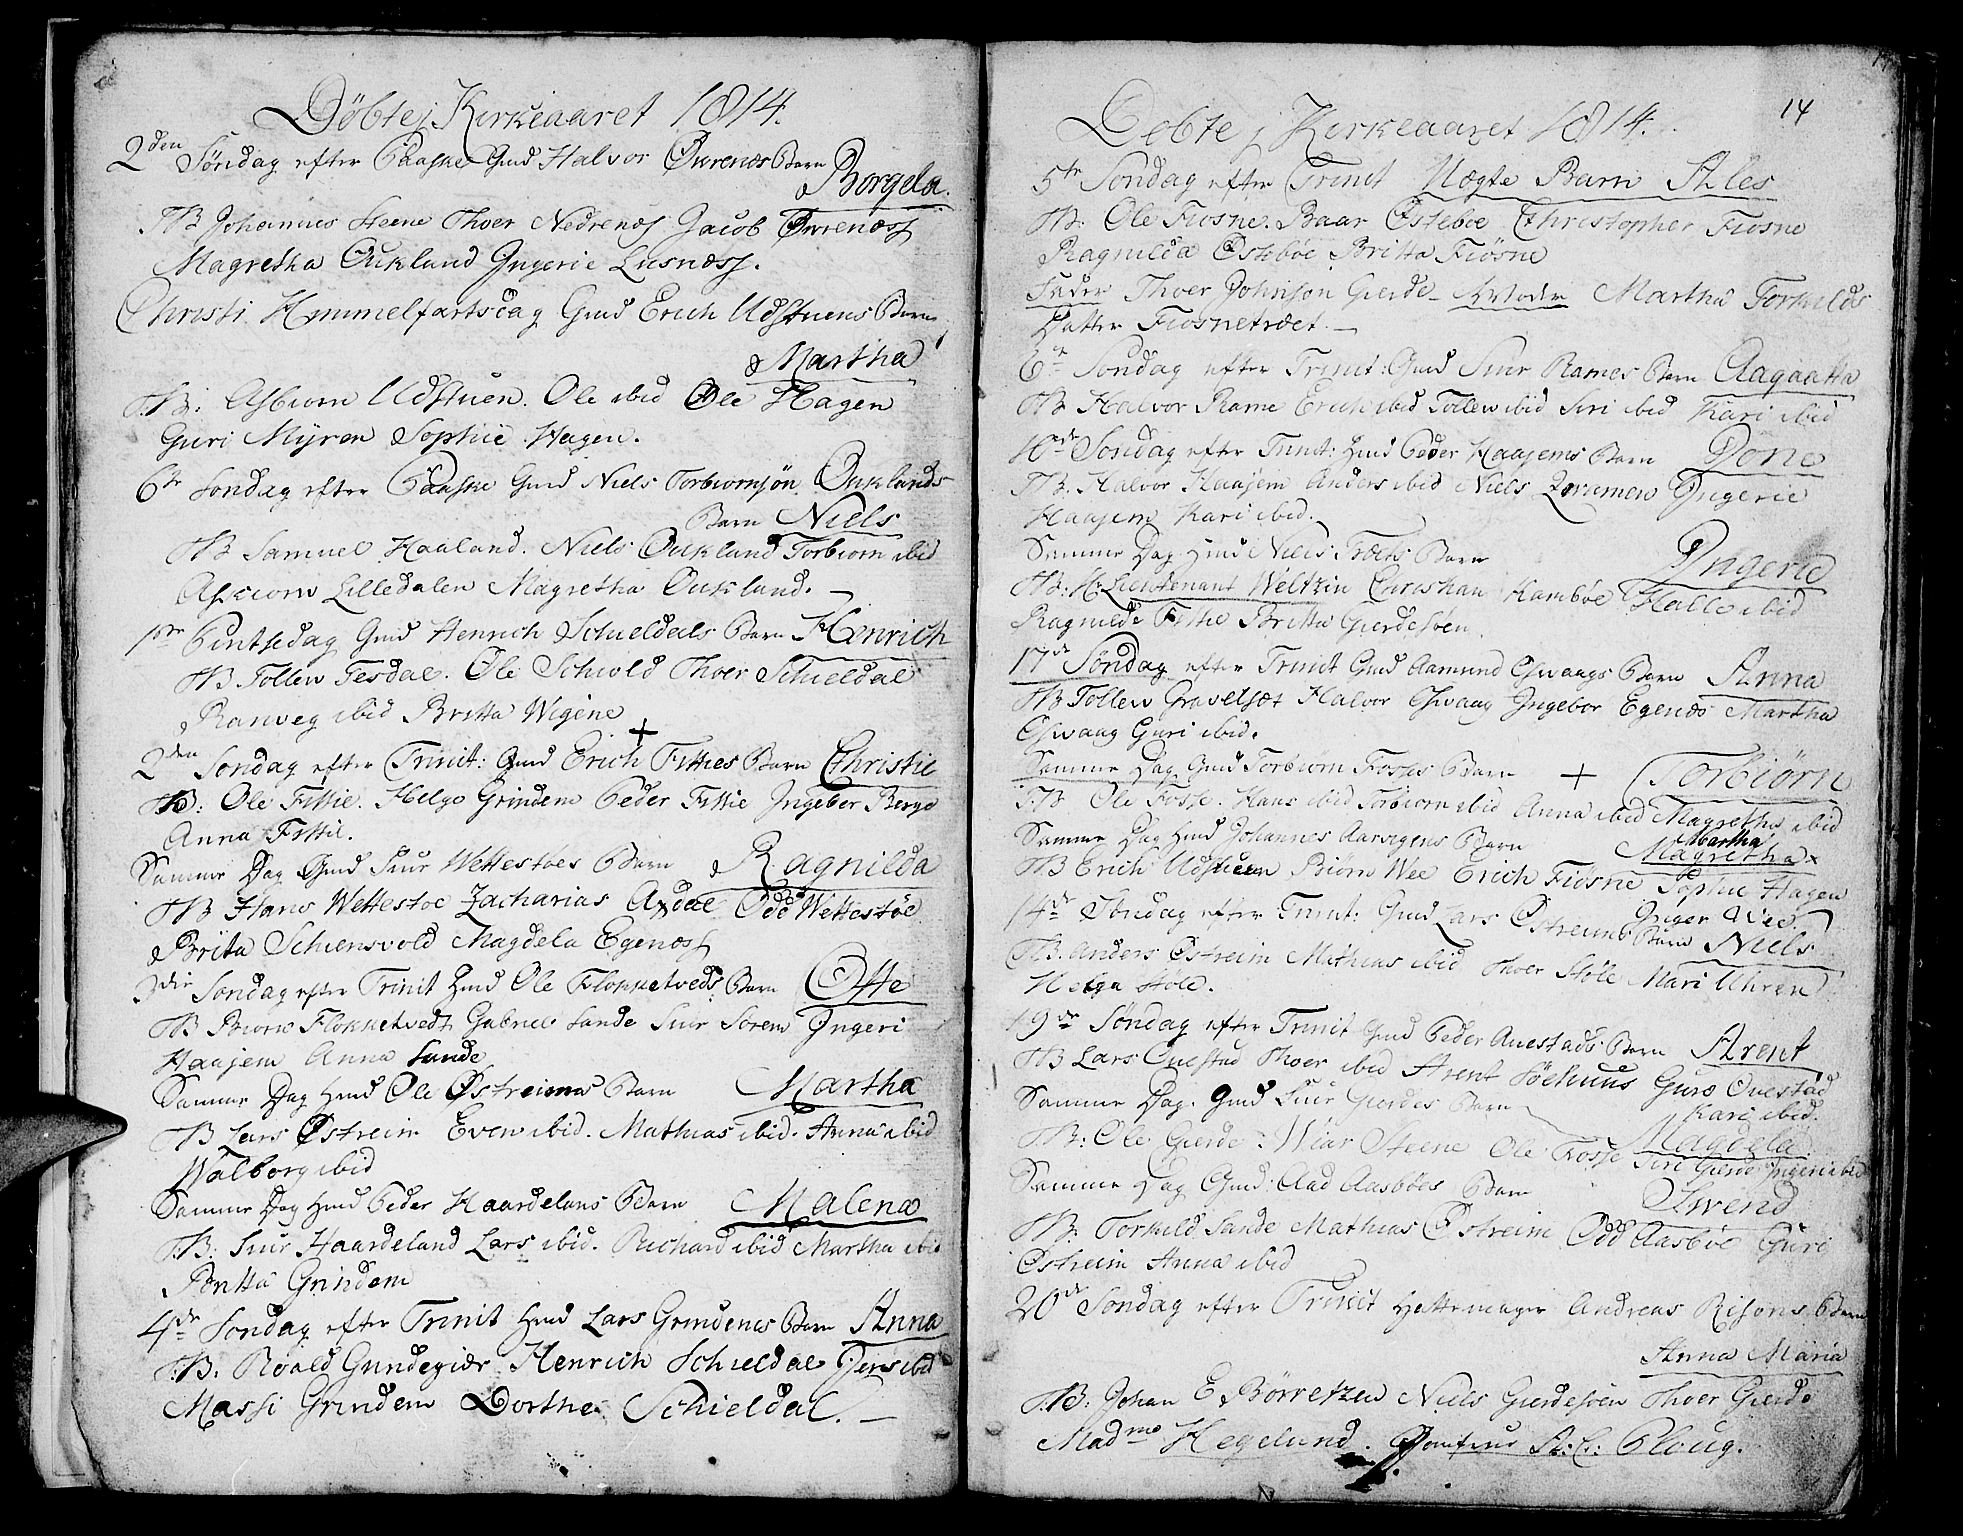 Döbte j Kirkeaaret 1814.
2den Söndag efter Paaske Gmd Halvor Øvrenæs Barn
Borgela.
TB Johannes Steene Thoer Nedrenæs Jacob Øvrenæss
Magretha Oukland Jngerie Lusnæss.
Christi Himmelfartsdag Gmd Erich Udstuens Barn
Martha
T.B: Asbiorn Udstuen. Ole ibid Ole Hagen
Guri Myren Sophie Hagen.
6te Sondag efter Paaske Gmd Niels Torbiornsön Ouklands
Barn Niels
TB Samuel Kaaland. Niels Oukland Torbiorn ibid
Asbiorn Lilledalen Magretha Oukland. —
1ste Pintsedag Gmd Henrich Schieldals Barn Henrich
TB Tollew Tesdal. Ole Schiold Thoer Schieldal
Ranveg ibid Britta Wigene
+
2den Sondag efter Trinit: Gmd Erich Fitties Barn Christie
TB: Ole Fittie. Helge Grindem Peder Fittie Jngeber Berge
Anna Fittie.
Samme Dag Gmd Siur Wettestöes Barn Ragnilda
TB Hans Wettestoe Zacharias Axdal Odd Wettestöe
Brita Schiensvold Magdela Egenæss
3die Sondag efter Trinit Hmd Ole Flokketveds Barn Offe
TB Biorn Flokketvedt Gabriel Sande Siur Sorem Jngeri
Haajem Anna Sande
Samme Dag Hmd Ole Østreims Barn Martha
TB Lars Østreim Even ibid. Mathias ibid. Anna ibid
Walborg ibid
Samme Dag Hmd Peder Haardelans Barn Malena
T.B: Siur Haardeland Lars ibid. Richard ibid Martha ibid
Britta Grindem
4de Sondag efter Trinit Hmd Lars Grindems Barn Anna
T.B. Roald Grindegier Henrich Schieldal Jens ibid
Massi Grindem Dorthe Schieldal. —
14
Döbte j Kirkeaaret 1814.
5te Sondag efter Trinit Uægte Barn Ales
TB: Ole Fiosne. Baar Østeboe Christopher Fiosne
Ragnilda Østeböe Britta Fiösne
Fader Thoer Johnson Gierde — Moder Martha Torkilds
Datter Fiosnetræet. —
6te Sondag efter Trinit: Gmd Siur Rames Barn Aagaatta
TB Halvor Rame Erich ibid Tollew ibid Siri ibid Kari ibid
10de Sondag efter Trinit: Hmd Peder Haajems Barn Done
TB. Halvor Haajem Anders ibid Niels Jngerie
Haajem Kari ibid.
Samme Dag Hmd Niels Træets Barn Jngerie
TB: Hr Lieutenant Weltzin Christian Kamböe Halle ibid
Ragnilde Fittie Britta Gierdesöen.
17de Söndag efter Trinit Gmd Aamund Eswaags Barn Anna
TB Tollew Gravelsæt Halvor Eswaag Jngebor Egenæs Martha
Eswaag Guri ibid.
Samme Dag Gmd Torbiorn Fosses Barn + Torbiörn
T.B Ole Fosse. Hans ibid Torbiorn ibid Anna ibid Magretha ibid
Samme Dag Hmd Johannes Aarvegens Barn Martha
Magretha x
TB Erich Udstuen Biörn Wee Erich Fiösne Sophie Hagen
Jnger Wee
14de Sondag efter Trinit: Gmd Lars Østreims Barn Niels
TB. Anders Østreim Mathias ibid Thoer Stöle Mari Uhren
Helga Stöle.
19de Söndag efter Trinit Gmd Peder Auestads Barn Arent
TB Lars Ouestad Thoer ibid Arent Söehuus Guro Ouestad
Kari ibid.
Samme Dag. Gmd Siur Gierdes Barn Magdela
TB: Ole Gierde. Wiar Steene Ole Fosse Siri Gierde Jngeri ibid
Samme Dag Gmd: Aad Aasböes Barn Swend
TB: Torkild Sande Mathias Østreim Odd Aasböe Guri
Østreim Anna ibid
20de Sondag efter Trinit Hattemager Andreas Risons Barn
Anna Maria
T.B: Johan E Börretzen Niels Gierdesöen Thoer Gierde
Madme Hegelund. Jomfrue A: C: Ploug.